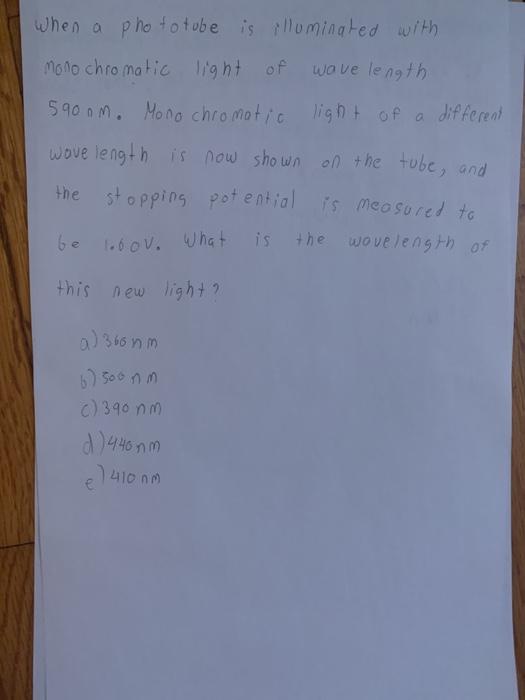 When a phototube is illuminated with
monochromatic light of wavelength
590 nm. Monochromatic light of a different
wavelength is now shown on the tube, and
the stopping potential is measured to
be 1.60V. What is the wavelength of
this new light?
a) 360 nm
b) 500 nm
c) 390 nm
d) 440 nm
e) 410 nm